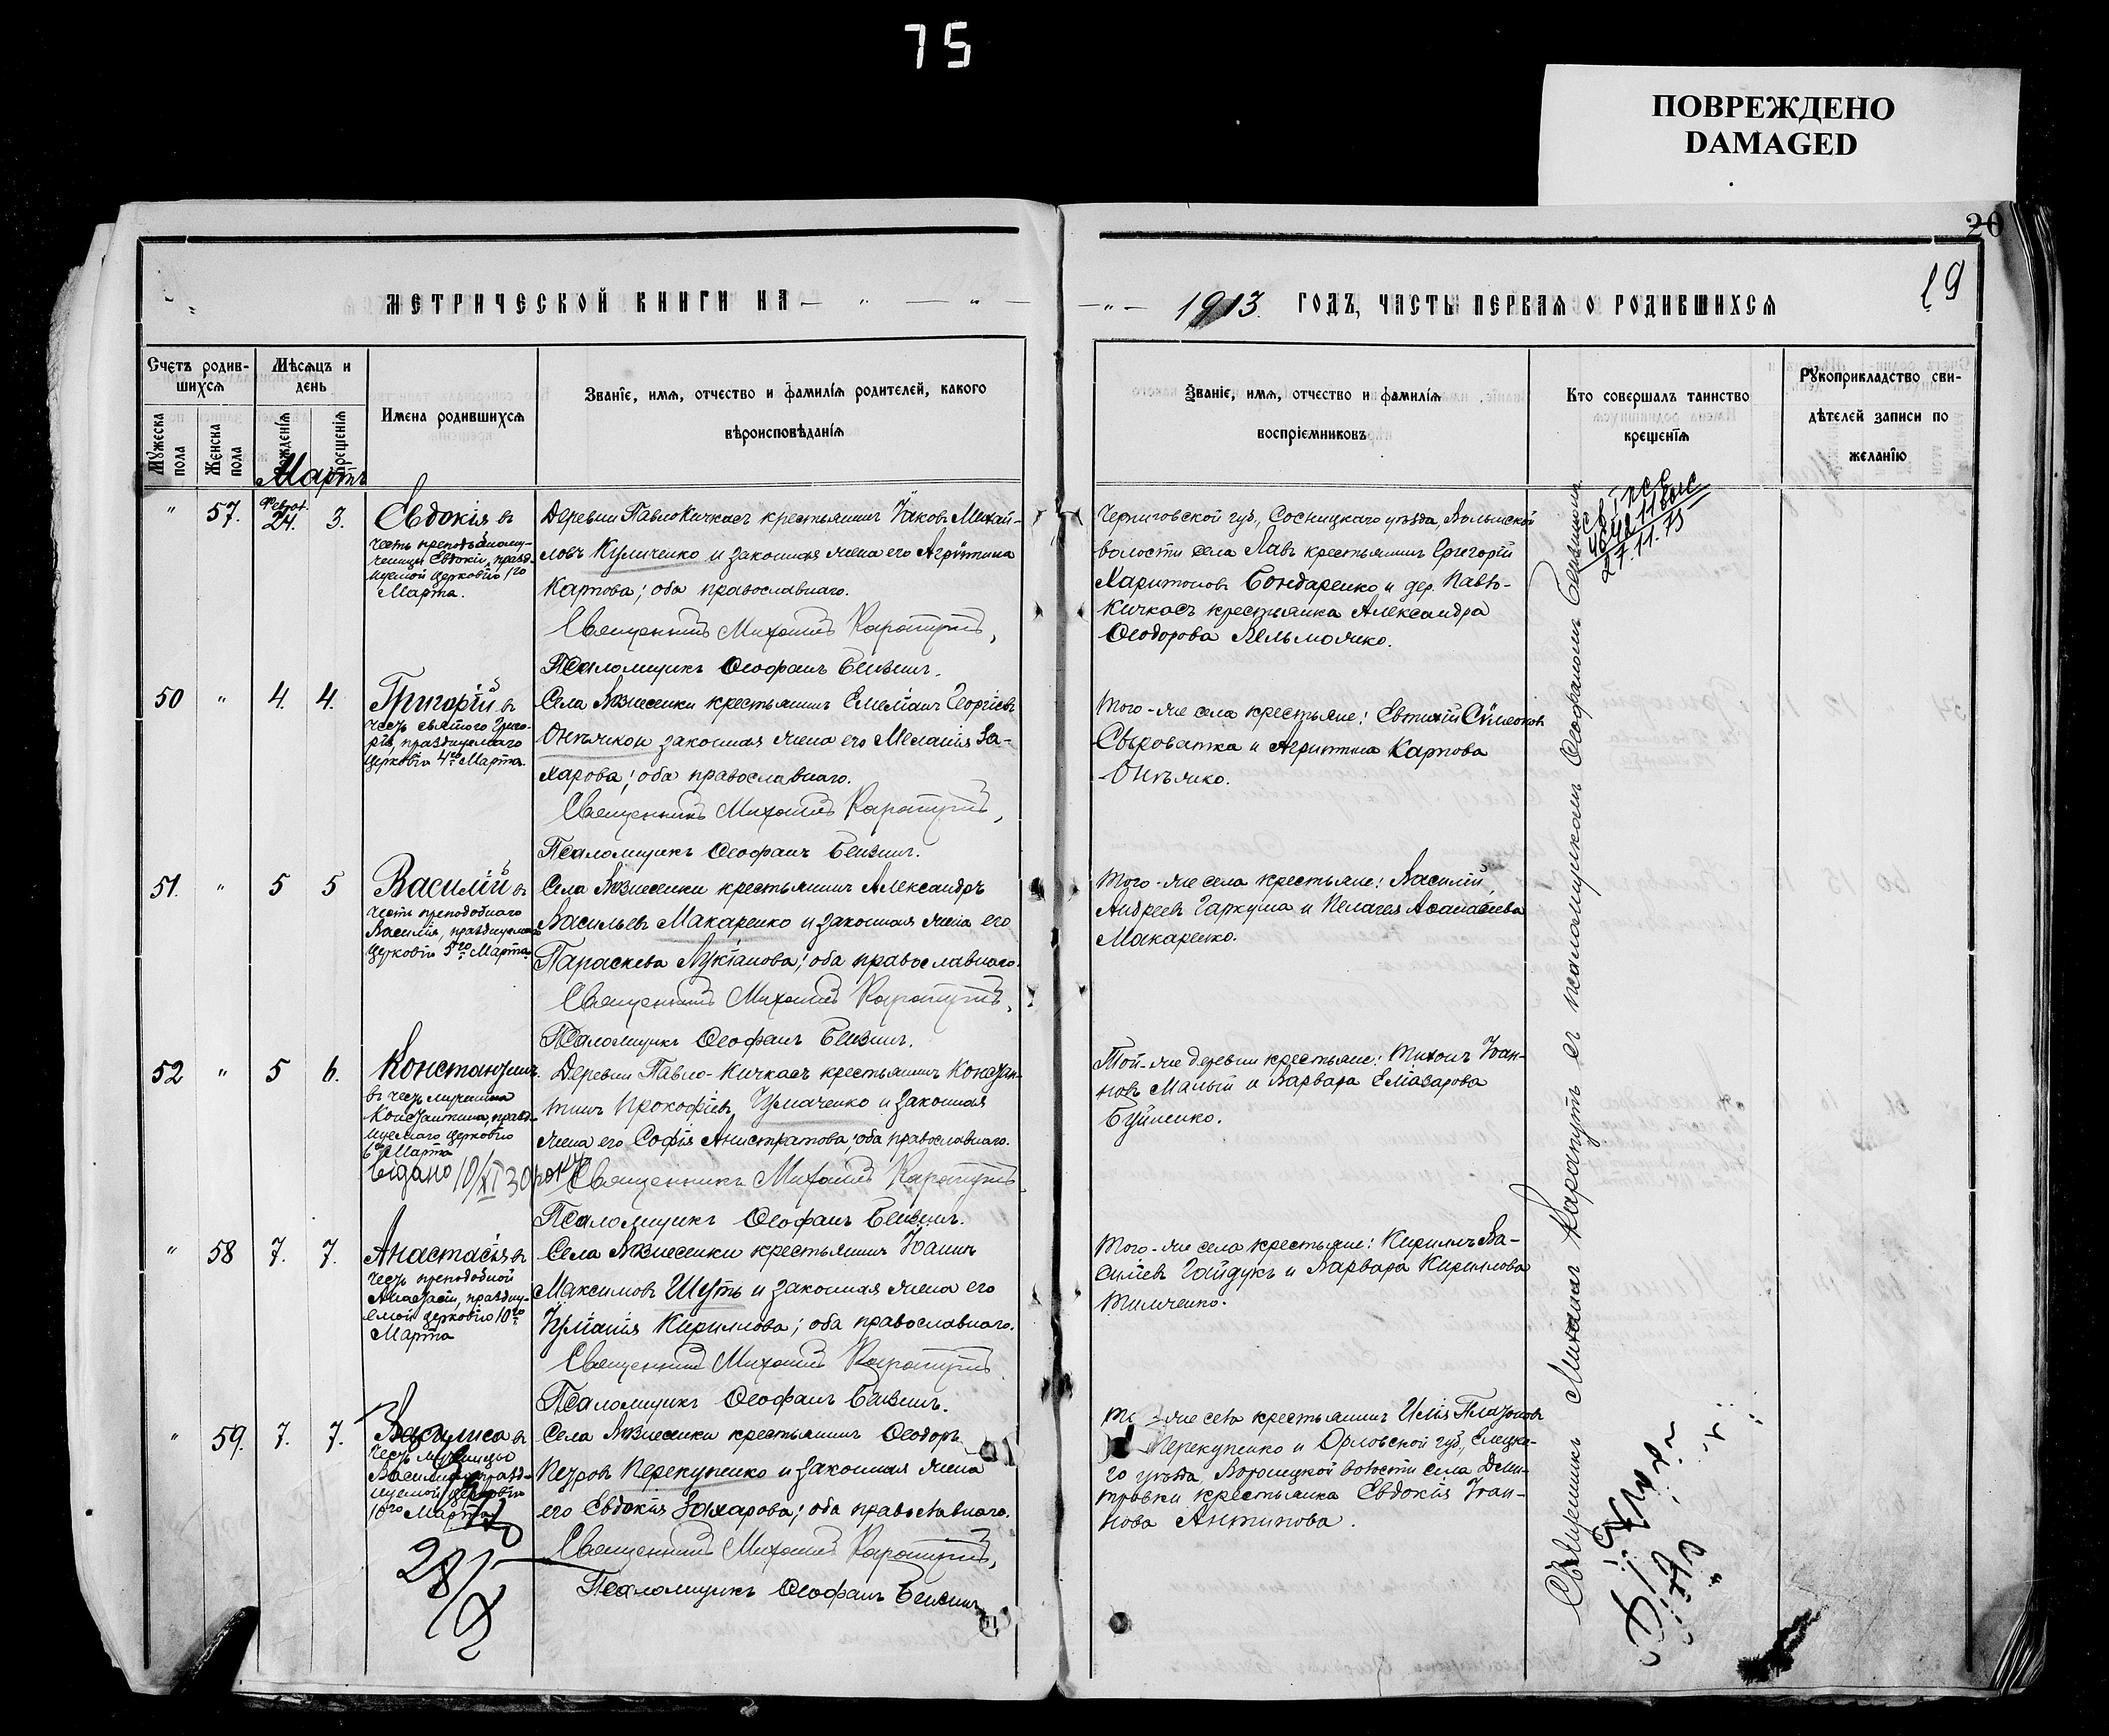 75
ПОВРЕЖДЕНО
DAMAGED
20
19
МЕТРИЧЕСКОЙ КНИГИ НА
1913. ГОДЪ, ЧАСТЬ ПЕРВАЯ О РОДИВШИХСЯ
Счетъ родив-
шихся
Мѣсяцъ и
день
Мужеска
пола
Женска
пола
рожденія
крещенія
Имена родившихся
Званіе, имя, отчество и фамилія родителей, какого
вѣроисповѣданія
Званіе, имя, отчество и фамилія
воспріемниковъ
Кто совершалъ таинство
крещенія
Рукоприкладство сви-
дѣтелей записи по
желанію
Мартъ
" 57. Феврал. 24. 3.
Евдокія въ
честь преподобному-
ченицы Евдокіи, празд-
нуемой церковію 1го
Марта.
Деревни Павло-Кичкасъ крестьянинъ Іаковъ Михай-
ловъ Куличенко и законная жена его Агрипина
Карпова; оба православнаго.
Священникъ Михаилъ Карапутъ,
Псаломщикъ Ѳеофанъ
Черниговской губ., Сосницкаго уѣзда, Волынской
волости села Лавъ крестьянинъ Григорій
Харитоновъ Бондаренко и дер. Павло-
Кичкасъ крестьянка Александра
Ѳеодорова Вельможко.
27.11.75
50 " 4. 4.
Григорій въ
честь святого Григо-
рія, празднуемаго
церковію 4го Марта.
Села Вознесенки крестьянинъ Емеліанъ Георгіевъ
Онѣжко и законная жена его Меланія За-
харова; оба православнаго.
Священникъ Михаилъ Карапутъ,
Псаломщикъ Ѳеофанъ
Того-же села крестьяне: Евтихій Сѵмеоновъ
Сыроватка и Агрипина Карпова
Онѣжко.
51. " 5 5
Василій въ
честь преподобнаго
Василія, празднуемаго
церковію 5го Марта
Села Вознесенки крестьянинъ Александръ
Васильевъ Макаренко и законная жена его
Параскева Лукіанова; оба православнаго.
Священникъ Михаилъ Карапутъ,
Псаломщикъ Ѳеофанъ
Того-же села крестьяне: Василій
Андреевъ Гаркуша и Пелагея Аѳанасіева
Макаренко.
52 " 5 6.
Константинъ
въ честь мученика
Константина, празд-
нуемаго церковію
6го Марта
Видано 10/XI 30
Деревни Павло-Кичкасъ крестьянинъ Констан-
тинъ Прокофіевъ Чумаченко и законная
жена его Софія Анистратова; оба православнаго.
Священникъ Михаилъ Карапутъ
Псаломщикъ Ѳеофанъ
Той-же деревни крестьяне: Тихонъ Іоан-
новъ Малый и Варвара Еліазарова
Буйленко.
" 58 7. 7.
Анастасія въ
честь преподобной
Анастасіи, праздну-
емой церковію 10го
Марта
Села Вознесенки крестьянинъ Іоаннъ
Максимовъ Шуть и законная жена его
Іуліанія Кириллова; оба православнаго.
Священникъ Михаилъ Карапутъ
Псаломщикъ Ѳеофанъ
Того-же села крестьяне: Кириллъ Ва-
силіевъ Гайдукъ и Варвара Кириллова
Тимченко.
" 59. 7. 7.
Василиса въ
честь мученицы
Василисы, празд-
нуемой церковію
10го Марта
Села Вознесенки крестьянинъ Ѳеодоръ
Петровъ Перекупенко и законная жена
его Евдокія Захарова; оба православнаго.
Священникъ Михаилъ Карапутъ,
Псаломщикъ Ѳеофанъ
-же села крестьянинъ Илія Платоновъ
Перекупенко и Орловской губ., Елецка-
го уѣзда, волости села Дми-
тровки крестьянка Евдокія Іоан-
нова Антипова.
Священникъ Михаилъ Карапутъ съ псаломщикомъ Ѳеофаномъ